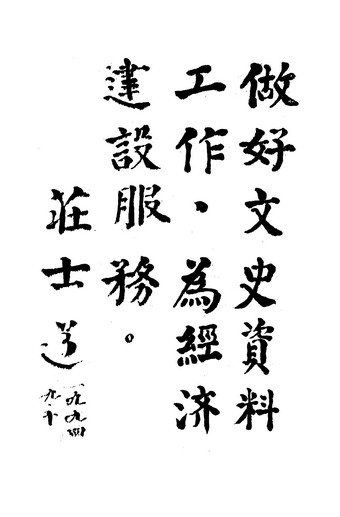 做好文史資料
工作、為經济
建設服務。
莊士
一九九四
九、十